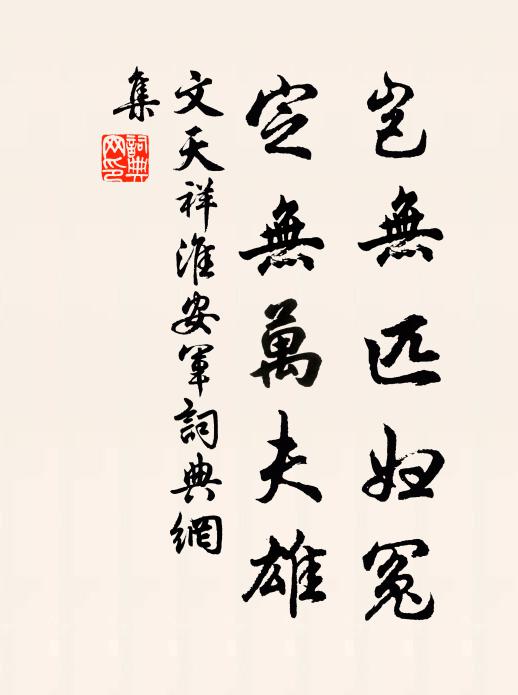 豈無匹妇冤
定無萬夫雄
文天祥淮安軍詞典網
集
詞典
网印